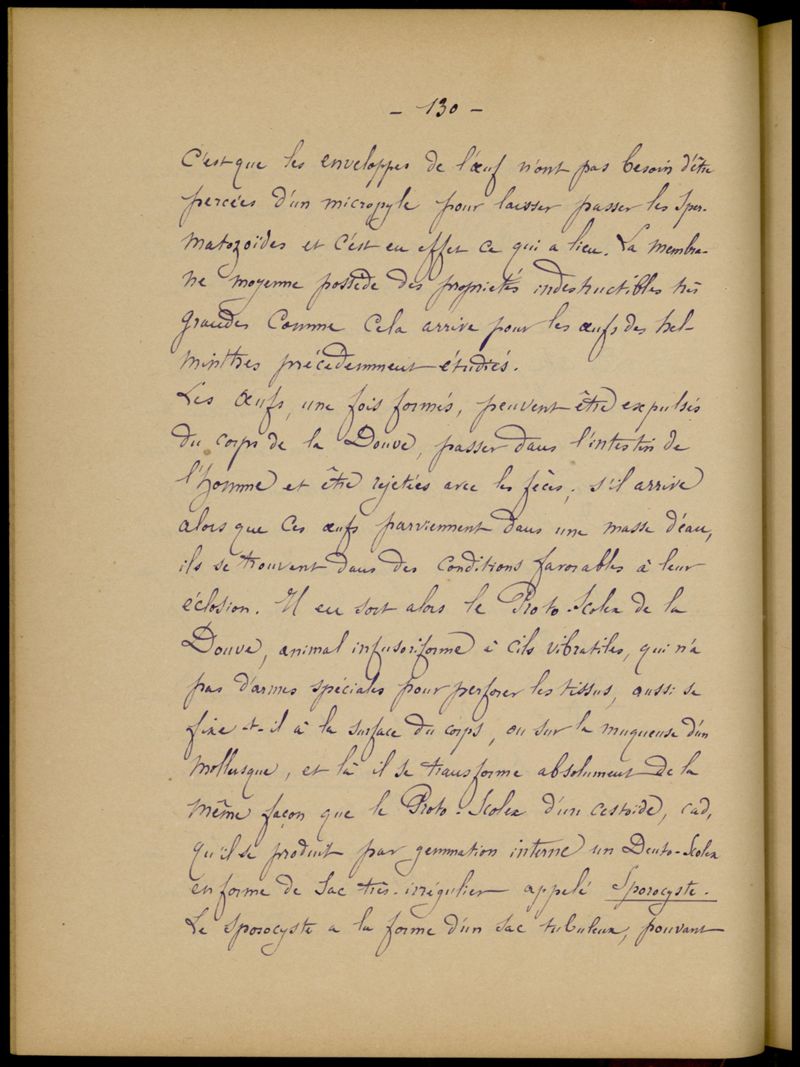 - 130 -
C'est que les enveloppes de l'œuf n'ont pas besoin d'être
percées d'un micropyle pour laisser passer les Sper-
matozoïdes et c'est en effet ce qui a lieu. La membra-
ne moyenne possède des propriétés indestructibles très
grandes comme cela arrive pour les œufs des hel-
minthes précédemment étudiés.
Les Œufs, une fois formés, peuvent être expulsés
du corps de la Douve, passer dans l'intestin de
l'homme et être rejetées avec les fèces; s'il arrive
alors que ces œufs parviennent dans une masse d'eau,
ils se trouvent dans des conditions favorables à leur
éclosion. Il en sort alors le Proto-Scolex de la
Douve, animal infusoriforme à cils vibratiles, qui n'a
pas d'armes spéciales pour perforer les tissus, aussi se
fixe-t-il à la surface du corps, ou sur la muqueuse d'un
Mollusque, et là il se transforme absolument de la
même façon que le Proto-Scolex d'un cestoïde, cad,
qu'il se produit par gemmation interne un Deuto-Scolex
en forme de Sac très-irrégulier appelé Sporocyste.
Le Sporocyste a la forme d'un sac tubuleux, pouvant